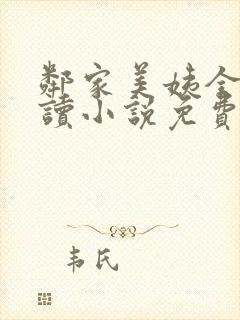 鄰家美姨全
讀小說免費
韦氏